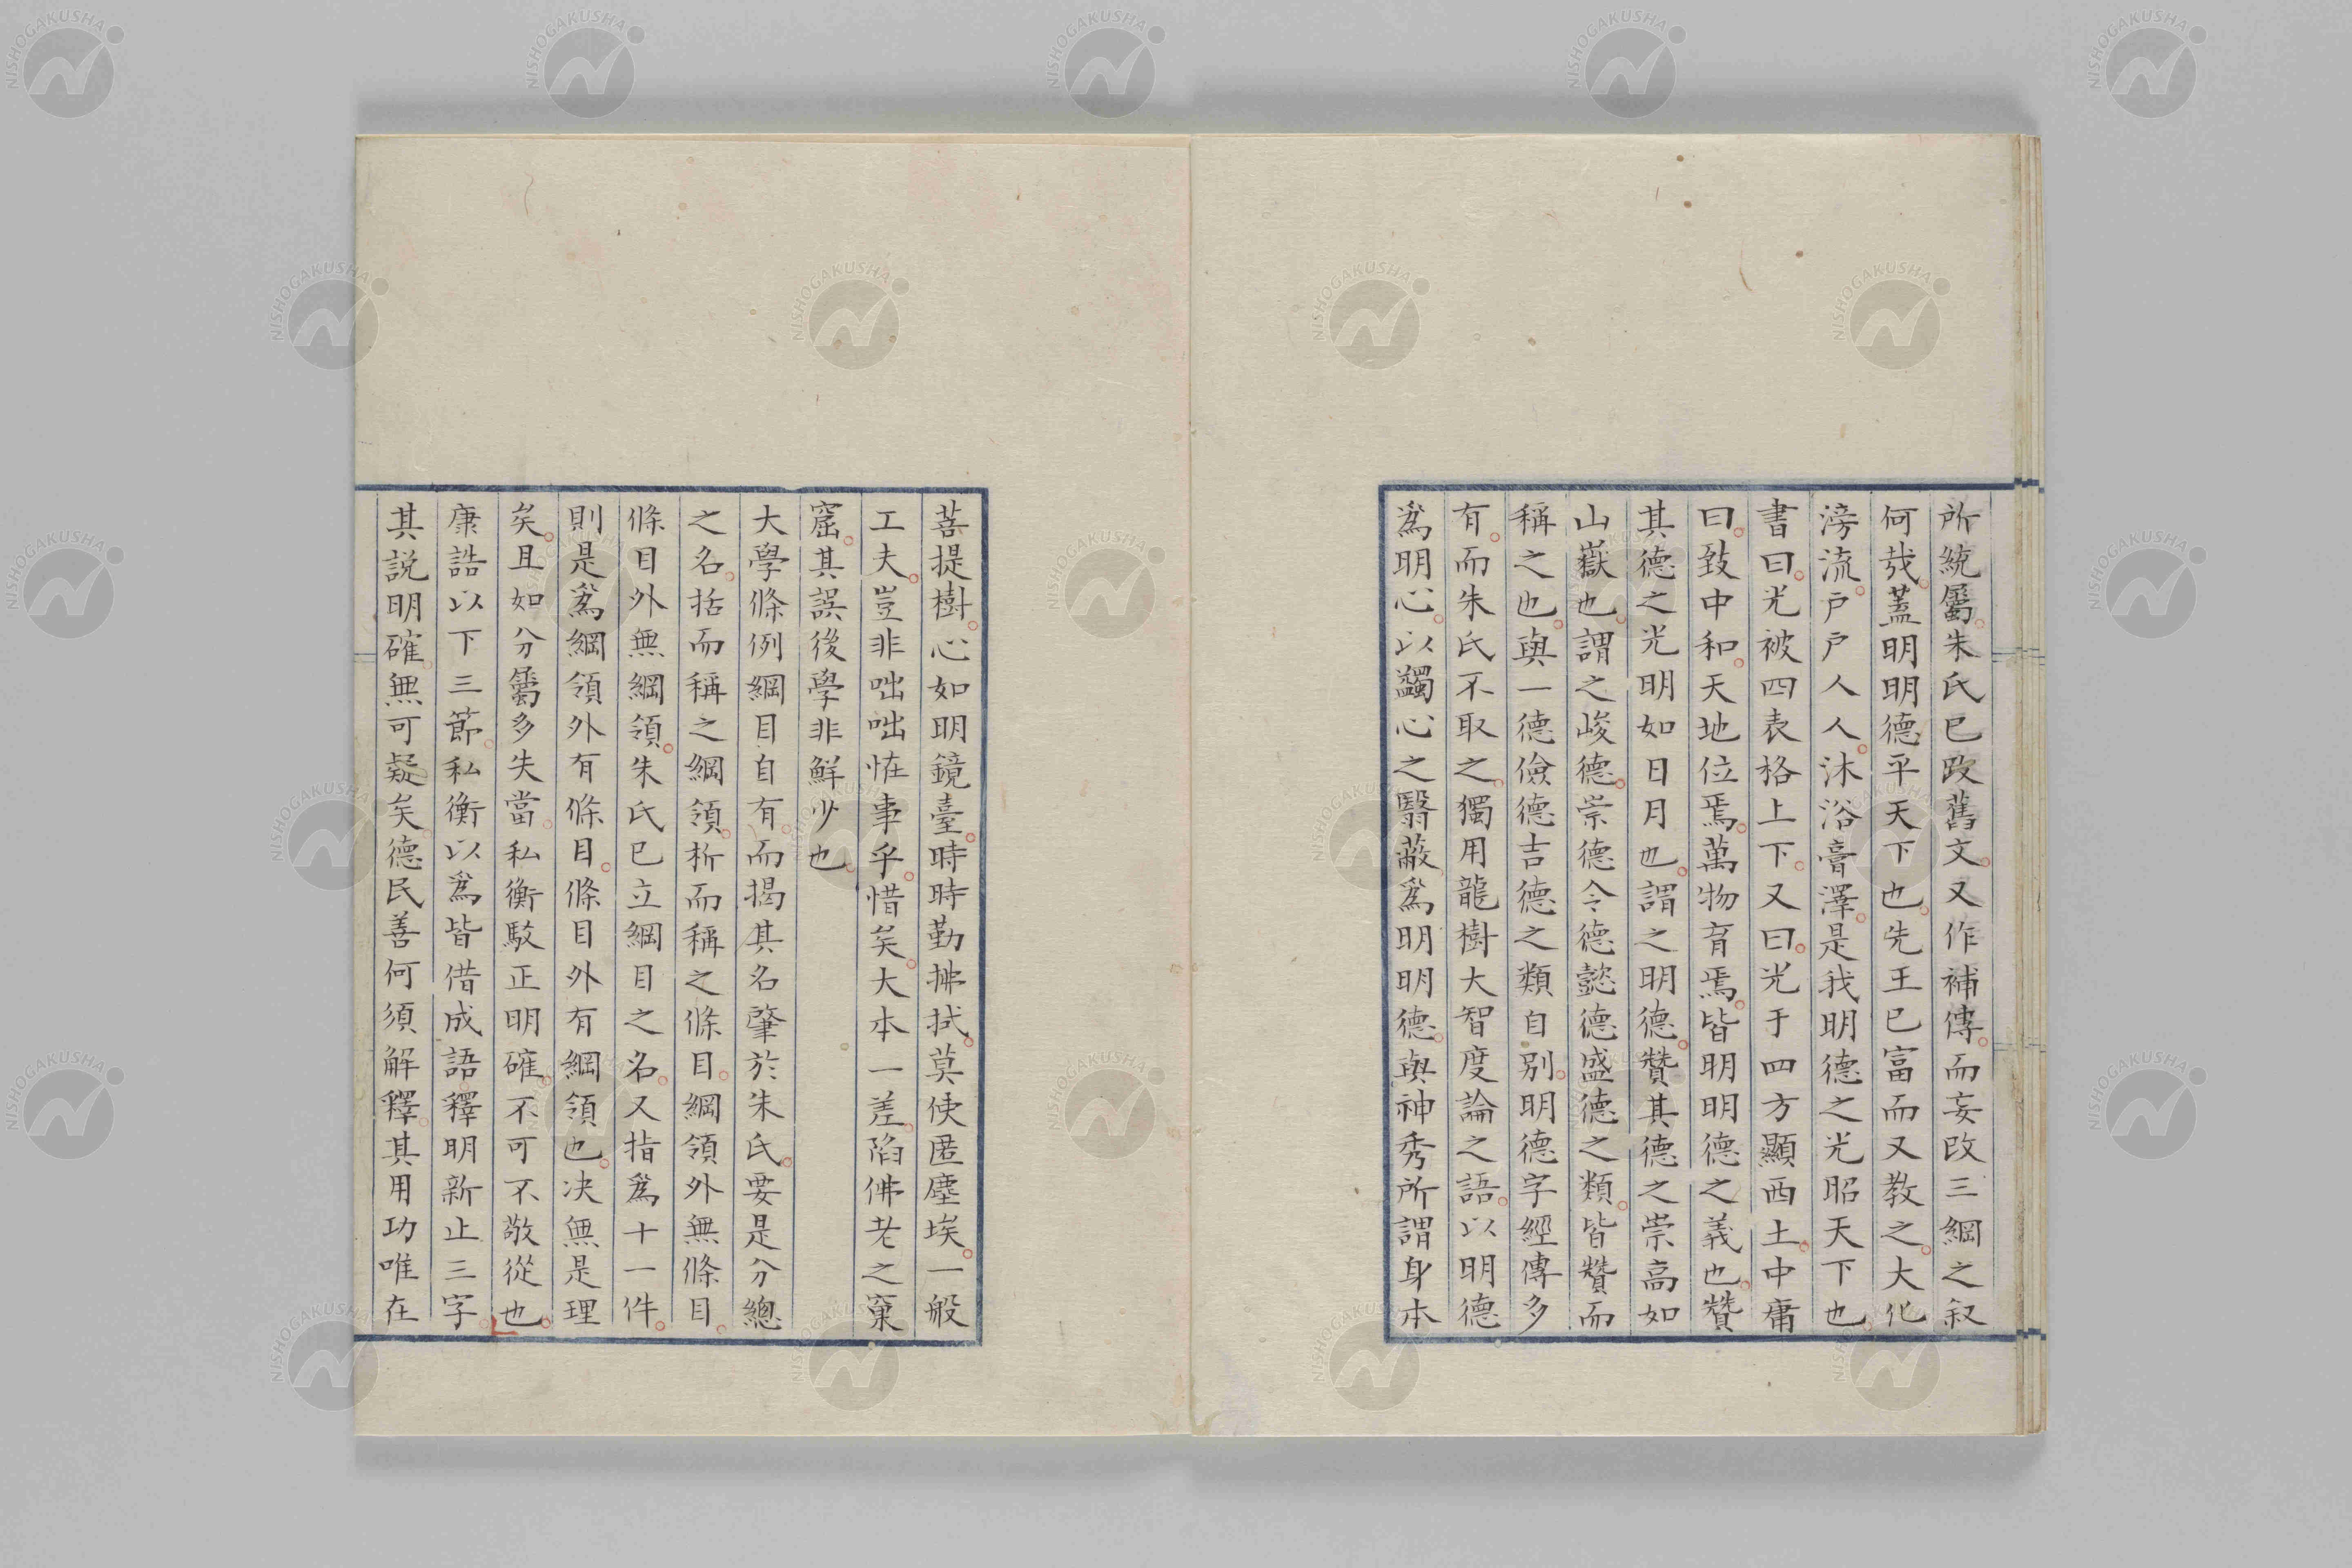 所統屬朱氏已改舊文又作補傳而妄改三綱之叙
何哉蓋明明德平天下也先王已富而又教之大化
滂流戶戶人人沐浴膏澤是我明德之光昭天下也
書曰光被四表格上下又曰光于四方顯西土中庸
曰致中和天地位焉萬物育焉皆明明德之義也贊
其德之光明如日月也謂之明德贊其德之崇高如
山嶽也謂之峻德崇德令德懿德盛德之類皆贊而
稱之也與一德儉德吉德之類自別明德字經傳多
有而朱氏不取之獨用龍樹大智度論之語以明德
爲明心以蠲心之翳蔽爲明明德與神秀所謂身本
菩提樹心如明鏡臺時時勤拂拭莫使匿塵埃一般
工夫豈非咄咄恠事乎惜矣大本一差陷佛老之窠
窟其誤後學非鮮少也
大學條例綱目自有而揭其名肇於朱氏要是分總
之名括而稱之綱領析而稱之條目綱領外無條目
條目外無綱領朱氏已立綱目之名又指爲十一件
則是爲綱領外有條目條目外有綱領也决無是理
矣且如分屬多失當私衡駁正明確不可不敬從也
康誥以下三節私衡以爲皆借成語釋明新止三字
其説明確無可疑矣德民善何須解釋其用功唯在
NISHOGAKUSHA